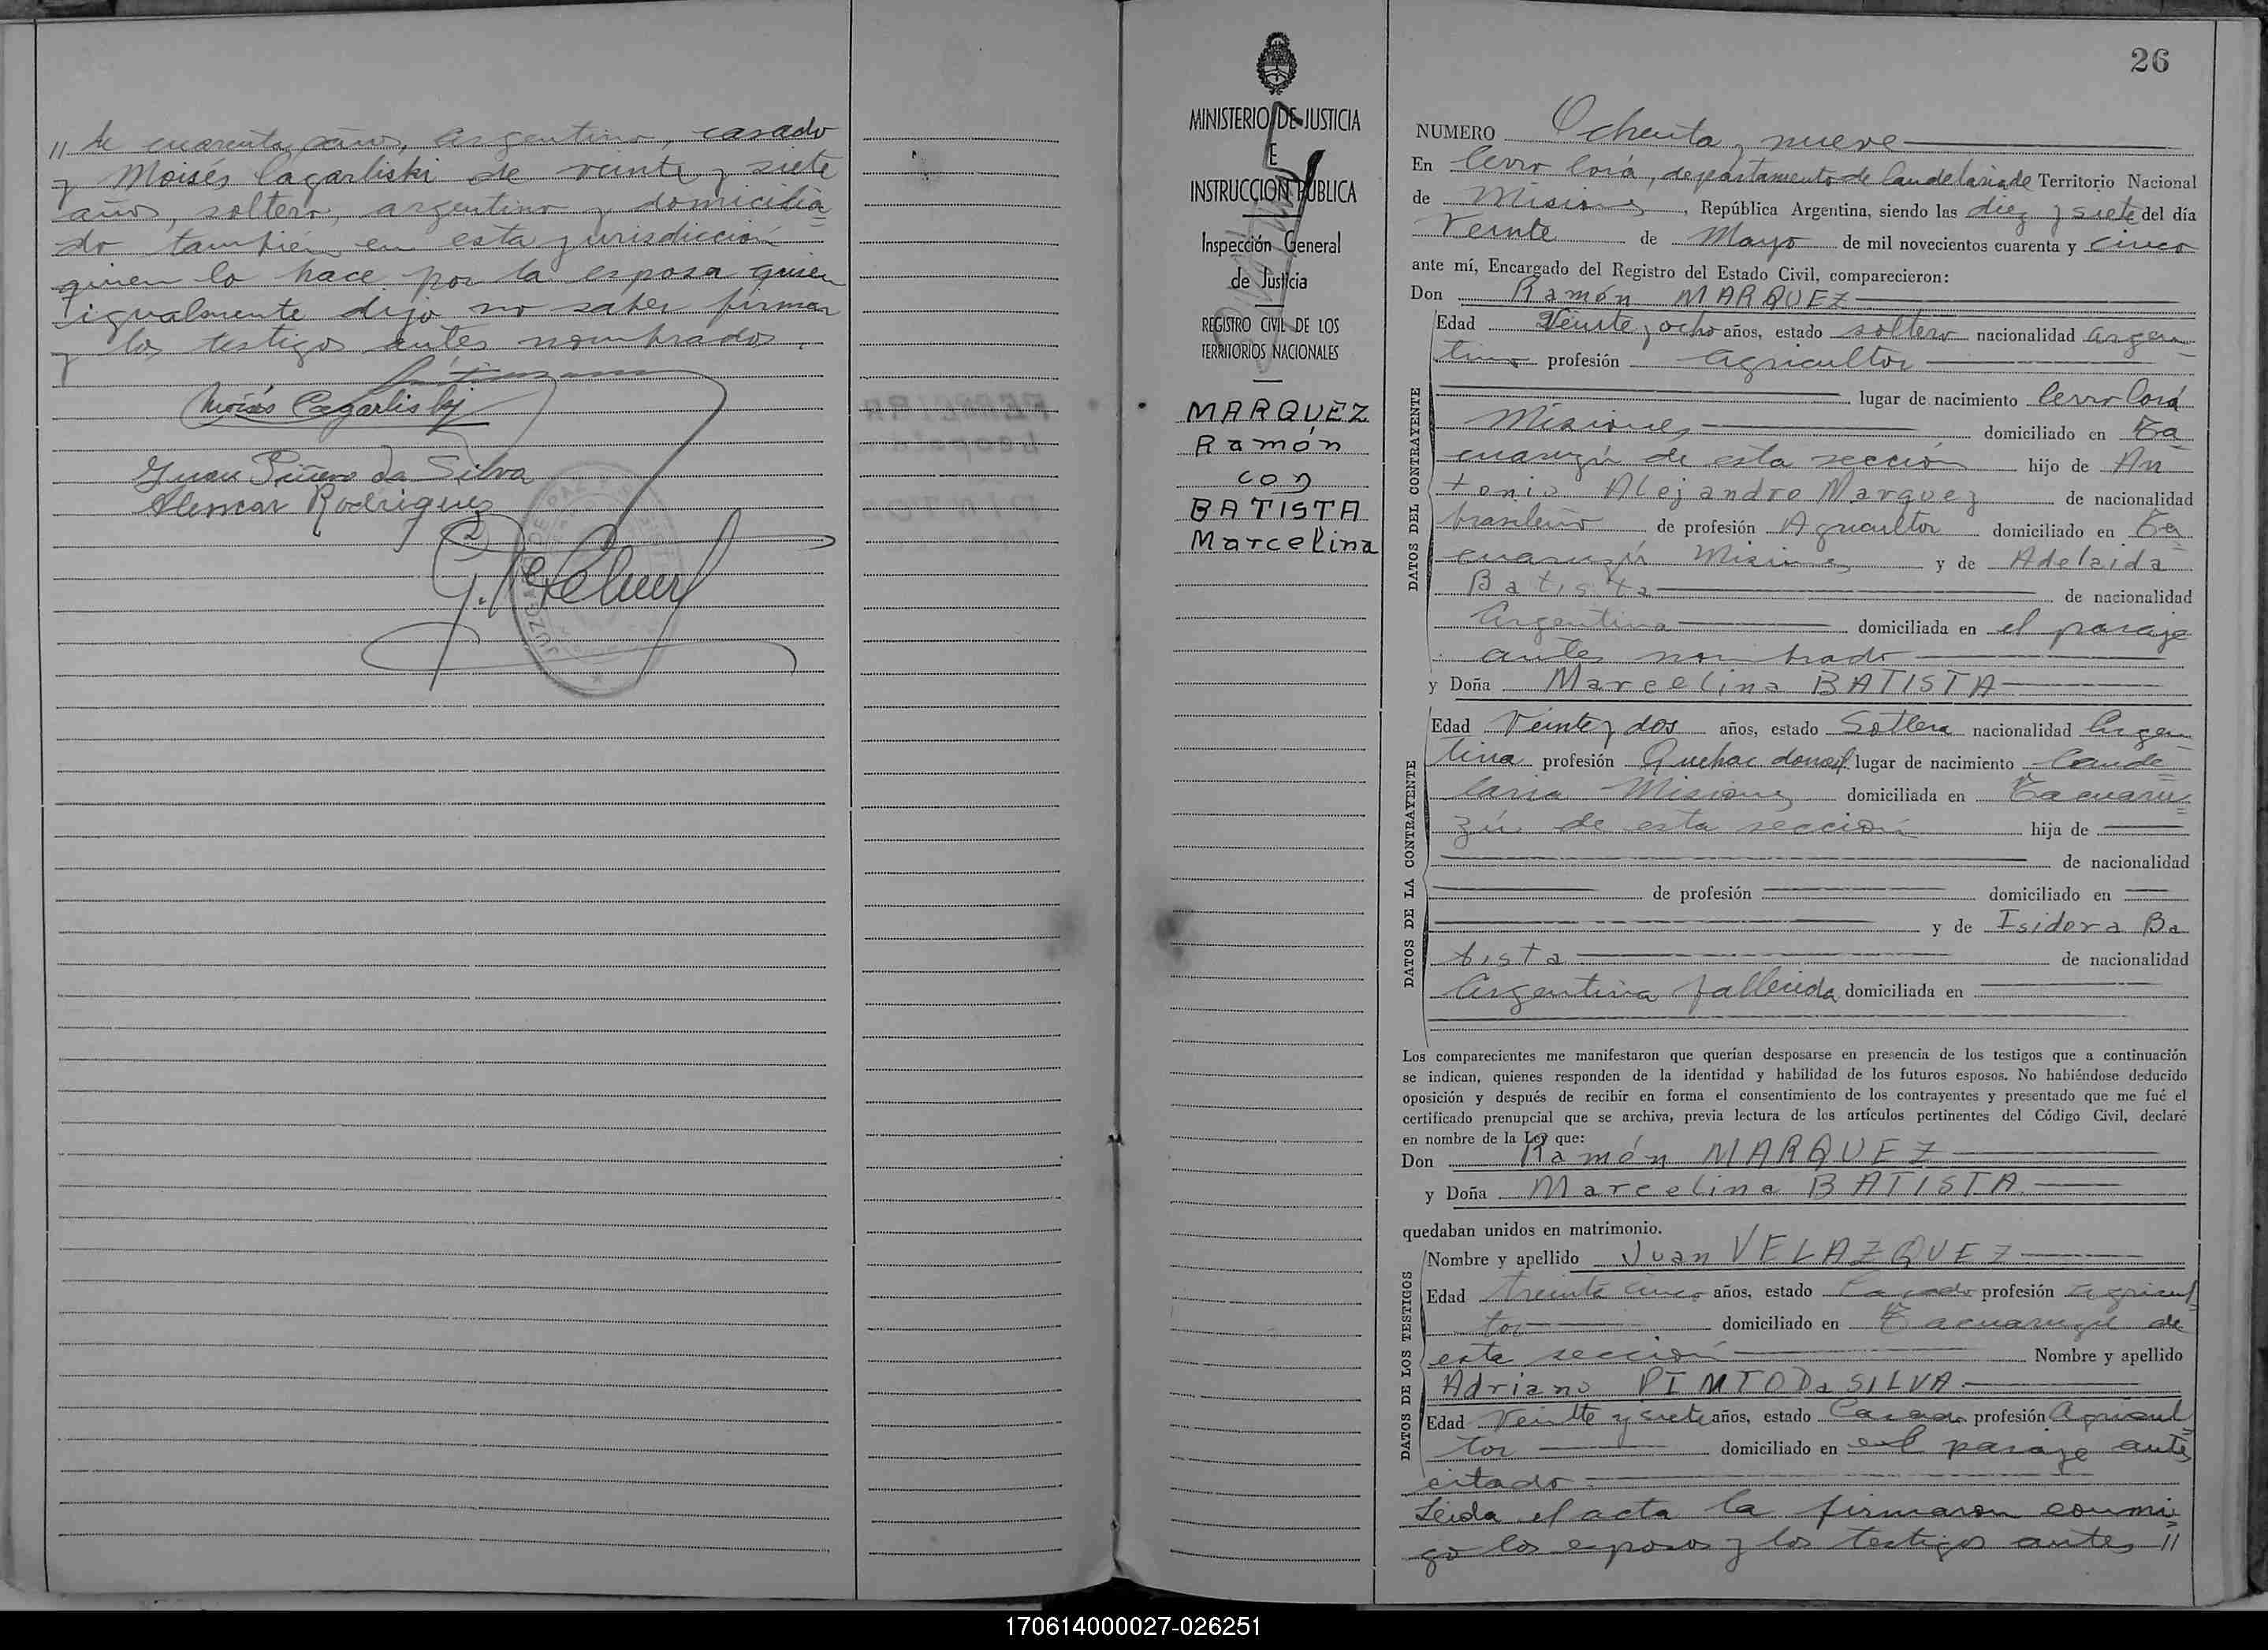 // de cuarenta años, argentino, casado
y Moisés Cagarliski de veinte y siete
años, soltero, argentino y domicilia=
do también en esta jurisdicción
quien lo hace por la esposa quien
igualmente dijo no saber firmar
y los testigos antes nombrados.
Moisés Cagarliskj
da Silva
Alencar Rodriguez
MINISTERIO DE JUSTICIA
E
INSTRUCCION PUBLICA
Inspección General
de Justicia
REGISTRO CIVIL DE LOS
TERRITORIOS NACIONALES
MARQUEZ
Ramón
con
BATISTA
Marcelina
26
NUMERO Ochenta y nueve
En Cerro Corá, departamento de Candelaria de Territorio Nacional
de Misiones, República Argentina, siendo las diez y siete del día
Veinte de Mayo de mil novecientos cuarenta y cinco
ante mí, Encargado del Registro del Estado Civil, comparecieron:
Don Ramón MARQUEZ
DATOS DEL CONTRAYENTE
Edad Veinte y ocho años, estado soltero nacionalidad Argen=
tino profesión agricultor
lugar de nacimiento Cerro Corá
Misiones domiciliado en Ta=
cuaruzú de esta sección hijo de An
tonio Alejandro Marquez de nacionalidad
brasileño de profesión Agricultor domiciliado en Ta=
cuaruzú Misiones y de Adelaida
Batista de nacionalidad
Argentina domiciliada en el paraje
antes nombrado
y Doña Marcelina BATISTA
DATOS DE LA CONTRAYENTE
Edad Veinte y dos años, estado Soltera nacionalidad Argen=
tina profesión Quehac domest. lugar de nacimiento Cande=
laria Misiones domiciliada en Tacuaru=
zú de esta sección hija de
de nacionalidad
de profesión domiciliado en
y de Isidora Ba
tista de nacionalidad
Argentina fallecida domiciliada en
Los comparecientes me manifestaron que querían desposarse en presencia de los testigos que a continuación
se indican, quienes responden de la identidad y habilidad de los futuros esposos. No habiéndose deducido
oposición y después de recibir en forma el consentimiento de los contrayentes y presentado que me fué el
certificado prenupcial que se archiva, previa lectura de los artículos pertinentes del Código Civil, declaré
en nombre de la Ley que:
Don Ramón MARQUEZ
y Doña Marcelina BATISTA
quedaban unidos en matrimonio.
DATOS DE LOS TESTIGOS
Nombre y apellido Juan VELAZQUEZ
Edad treinta cinco años, estado Casado profesión agricul
tor domiciliado en Tacuaruzú de
esta sección Nombre y apellido
Adriano PINTO Da SILVA
Edad Veintte y siete años, estado Casado profesión Agricul
tor domiciliado en el paraje antes
citado
Leida el acta la firmaron conmi=
go los esposos y los testigos antes //
170614000027-026251